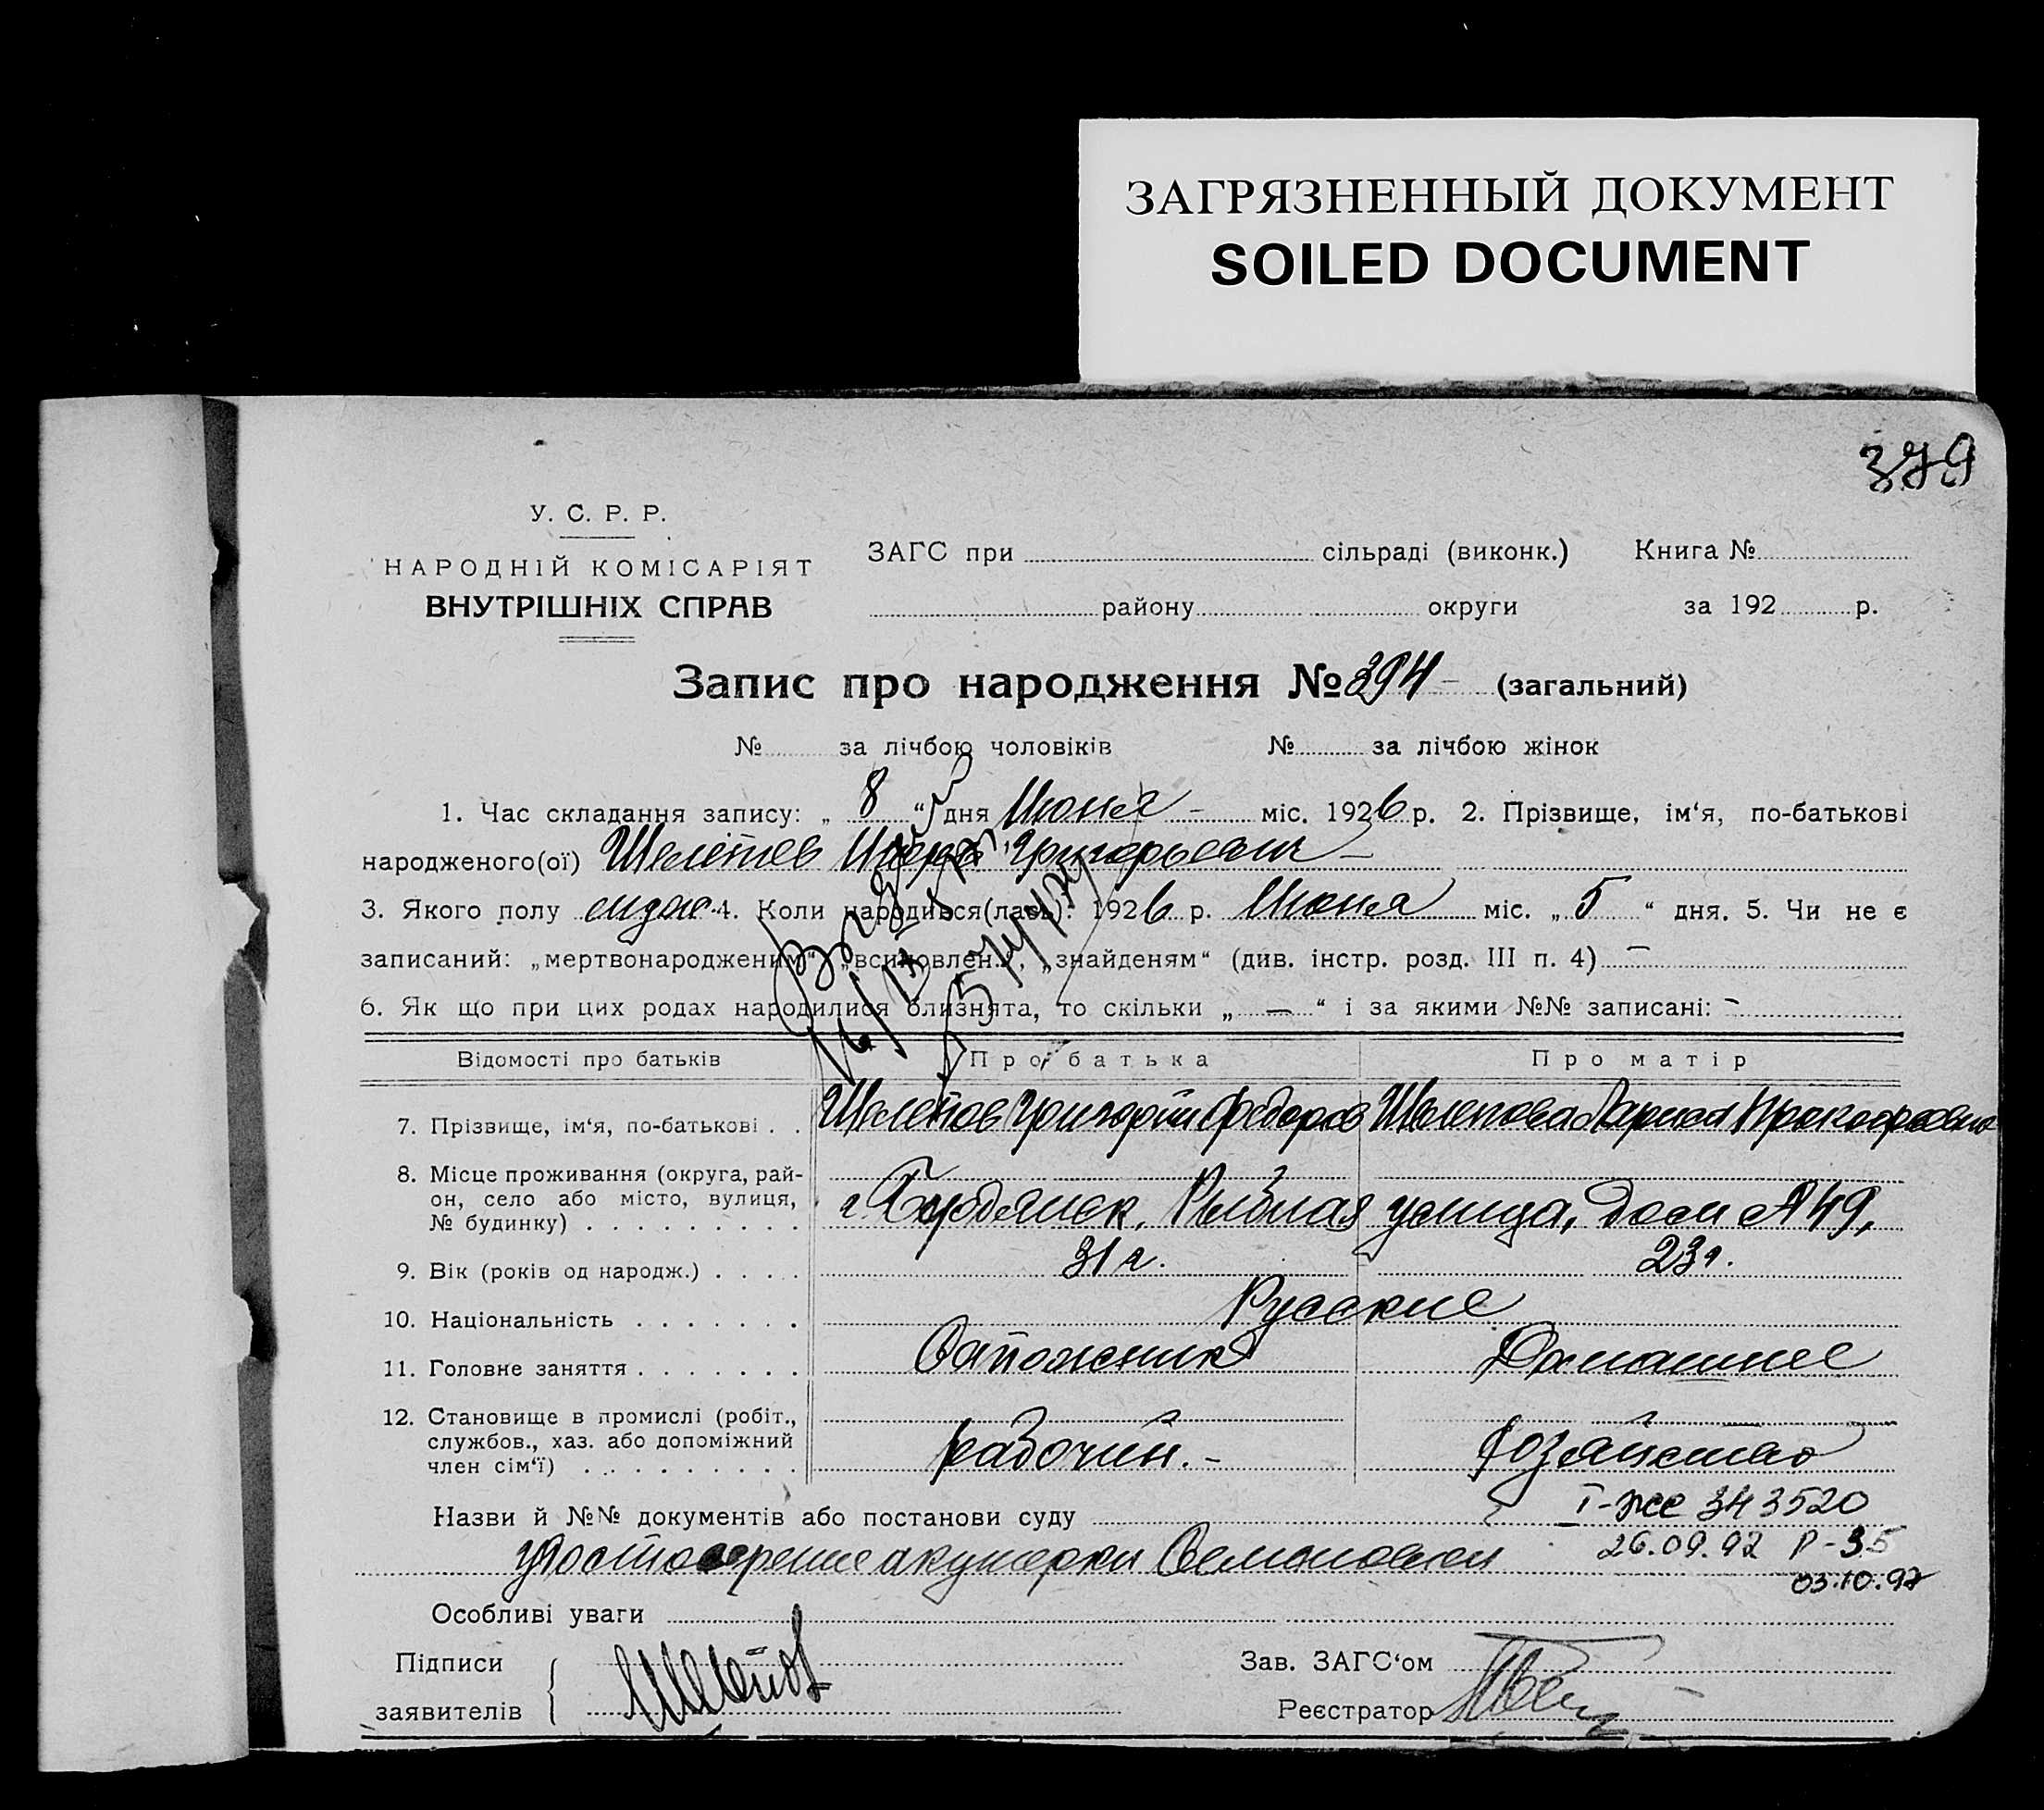 ЗАГРЯЗНЕННЫЙ ДОКУМЕНТ
SOILED DOCUMENT
379
У. С. Р. Р.
НАРОДНІЙ КОМІСАРІЯТ
ВНУТРІШНІХ СПРАВ
ЗАГС при сільраді (виконк.) Книга №
району округи за 192 р.
Запис про народження № 394 - (загальний)
№ за лічбою чоловіків № за лічбою жінок
1. Час складання запису: „ 8 “ дня Июня - міс. 1926 р. 2. Прізвище, ім‘я, по-батькові
народженого(ої) Шелепов Григорьевич -
3. Якого полу муж. 4. Коли народився(лась): 1926 р. Июня міс. „ 5 “ дня. 5. Чи не є
записаний: „мертвонародженим“, „всиновлен.“, „знайденям“ (див. інстр. розд. III п. 4) -
6. Як що при цих родах народилися близнята, то скільки „ — “ і за якими №№ записані: -
Відомості про батьків Про батька Про матір
7. Прізвище, ім‘я, по-батькові . . Шелепов Григорий Федоров Шелепова Прокофьевна
8. Місце проживання (округа, рай-
он, село або місто, вулиця,
№ будинку) . . . . . . . . . г. Бердянск, Рыбная улица, дом № 49,
9. Вік (років од народж.) . . . . 31 г. 23 г.
10. Національність . . . . . . . Русские
11. Головне заняття . . . . . . . Сапожник Домашнее
12. Становище в промислі (робіт.,
службов., хаз. або допоміжний
член сім‘ї) . . . . . . . . . рабочий. - хозяйство
Назви й №№ документів або постанови суду I-ЖС 343520
удостоверение акушерки 26.09.92 Р-35
03.10.97
Особливі уваги
Підписи Шелепов Зав. ЗАГС‘ом
заявителів Реєстратор